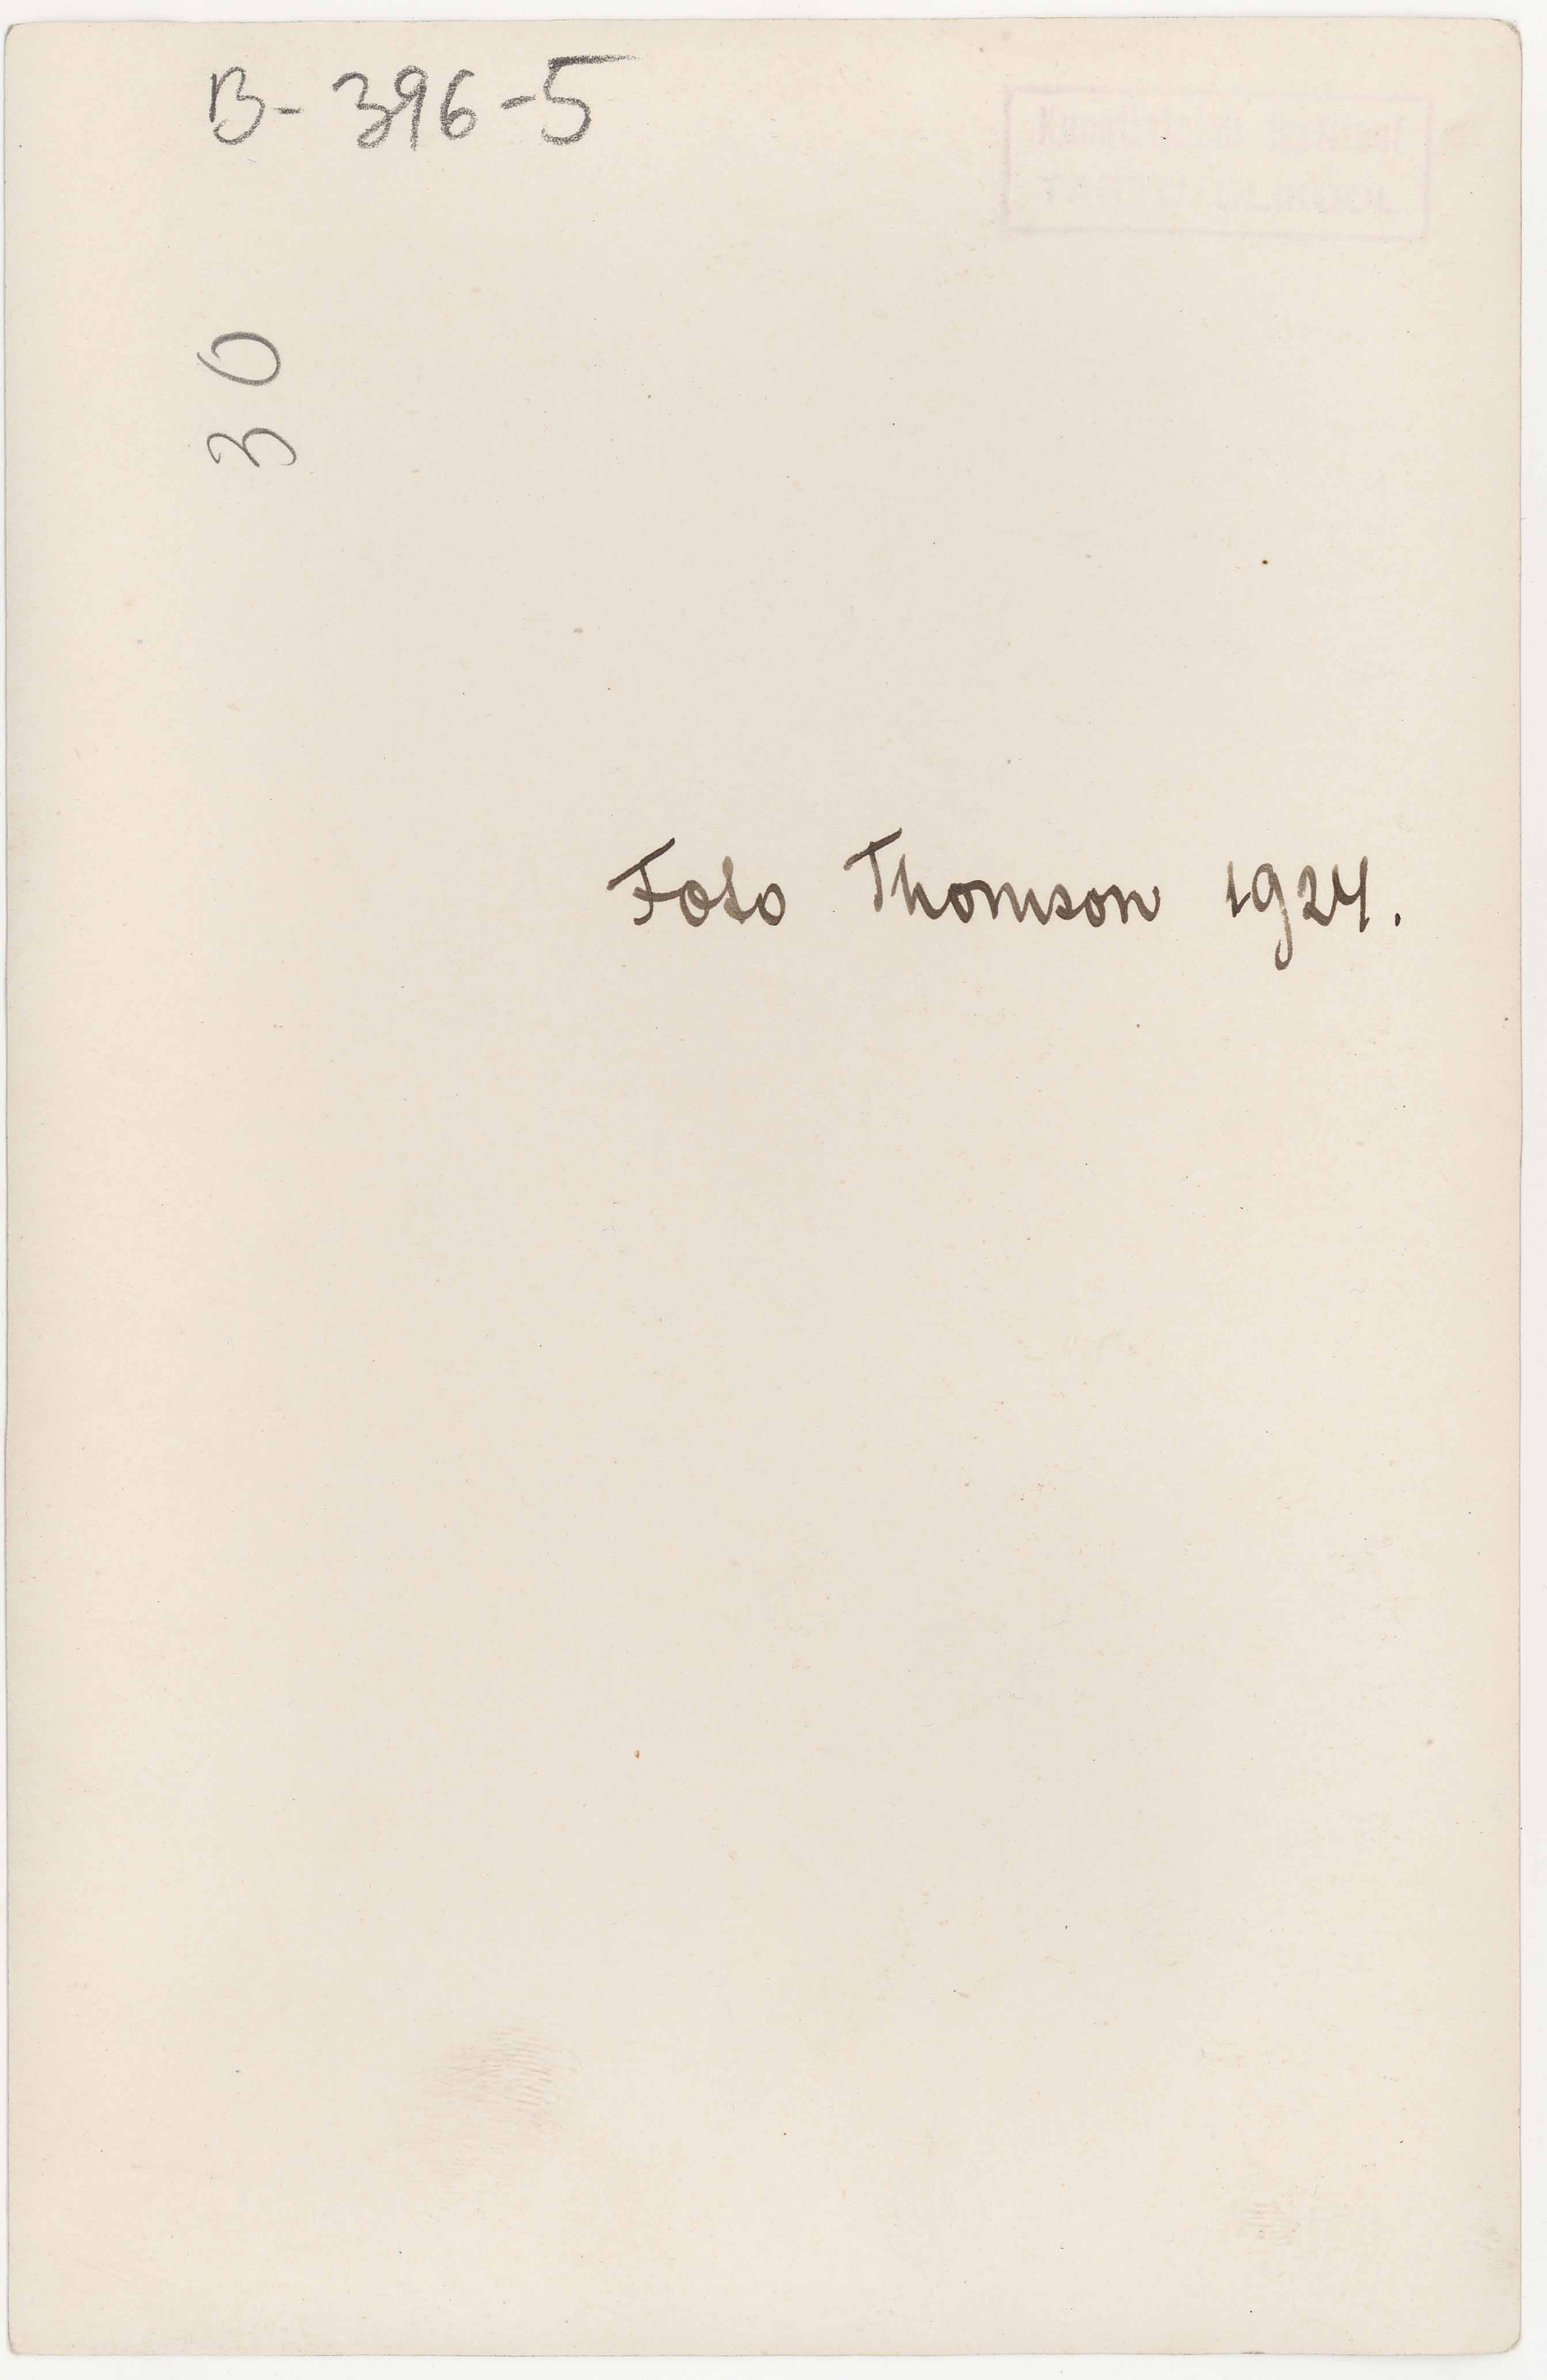 B-396-5
TARTU ÜLIKOOL
30
Foto Thomson 1924.